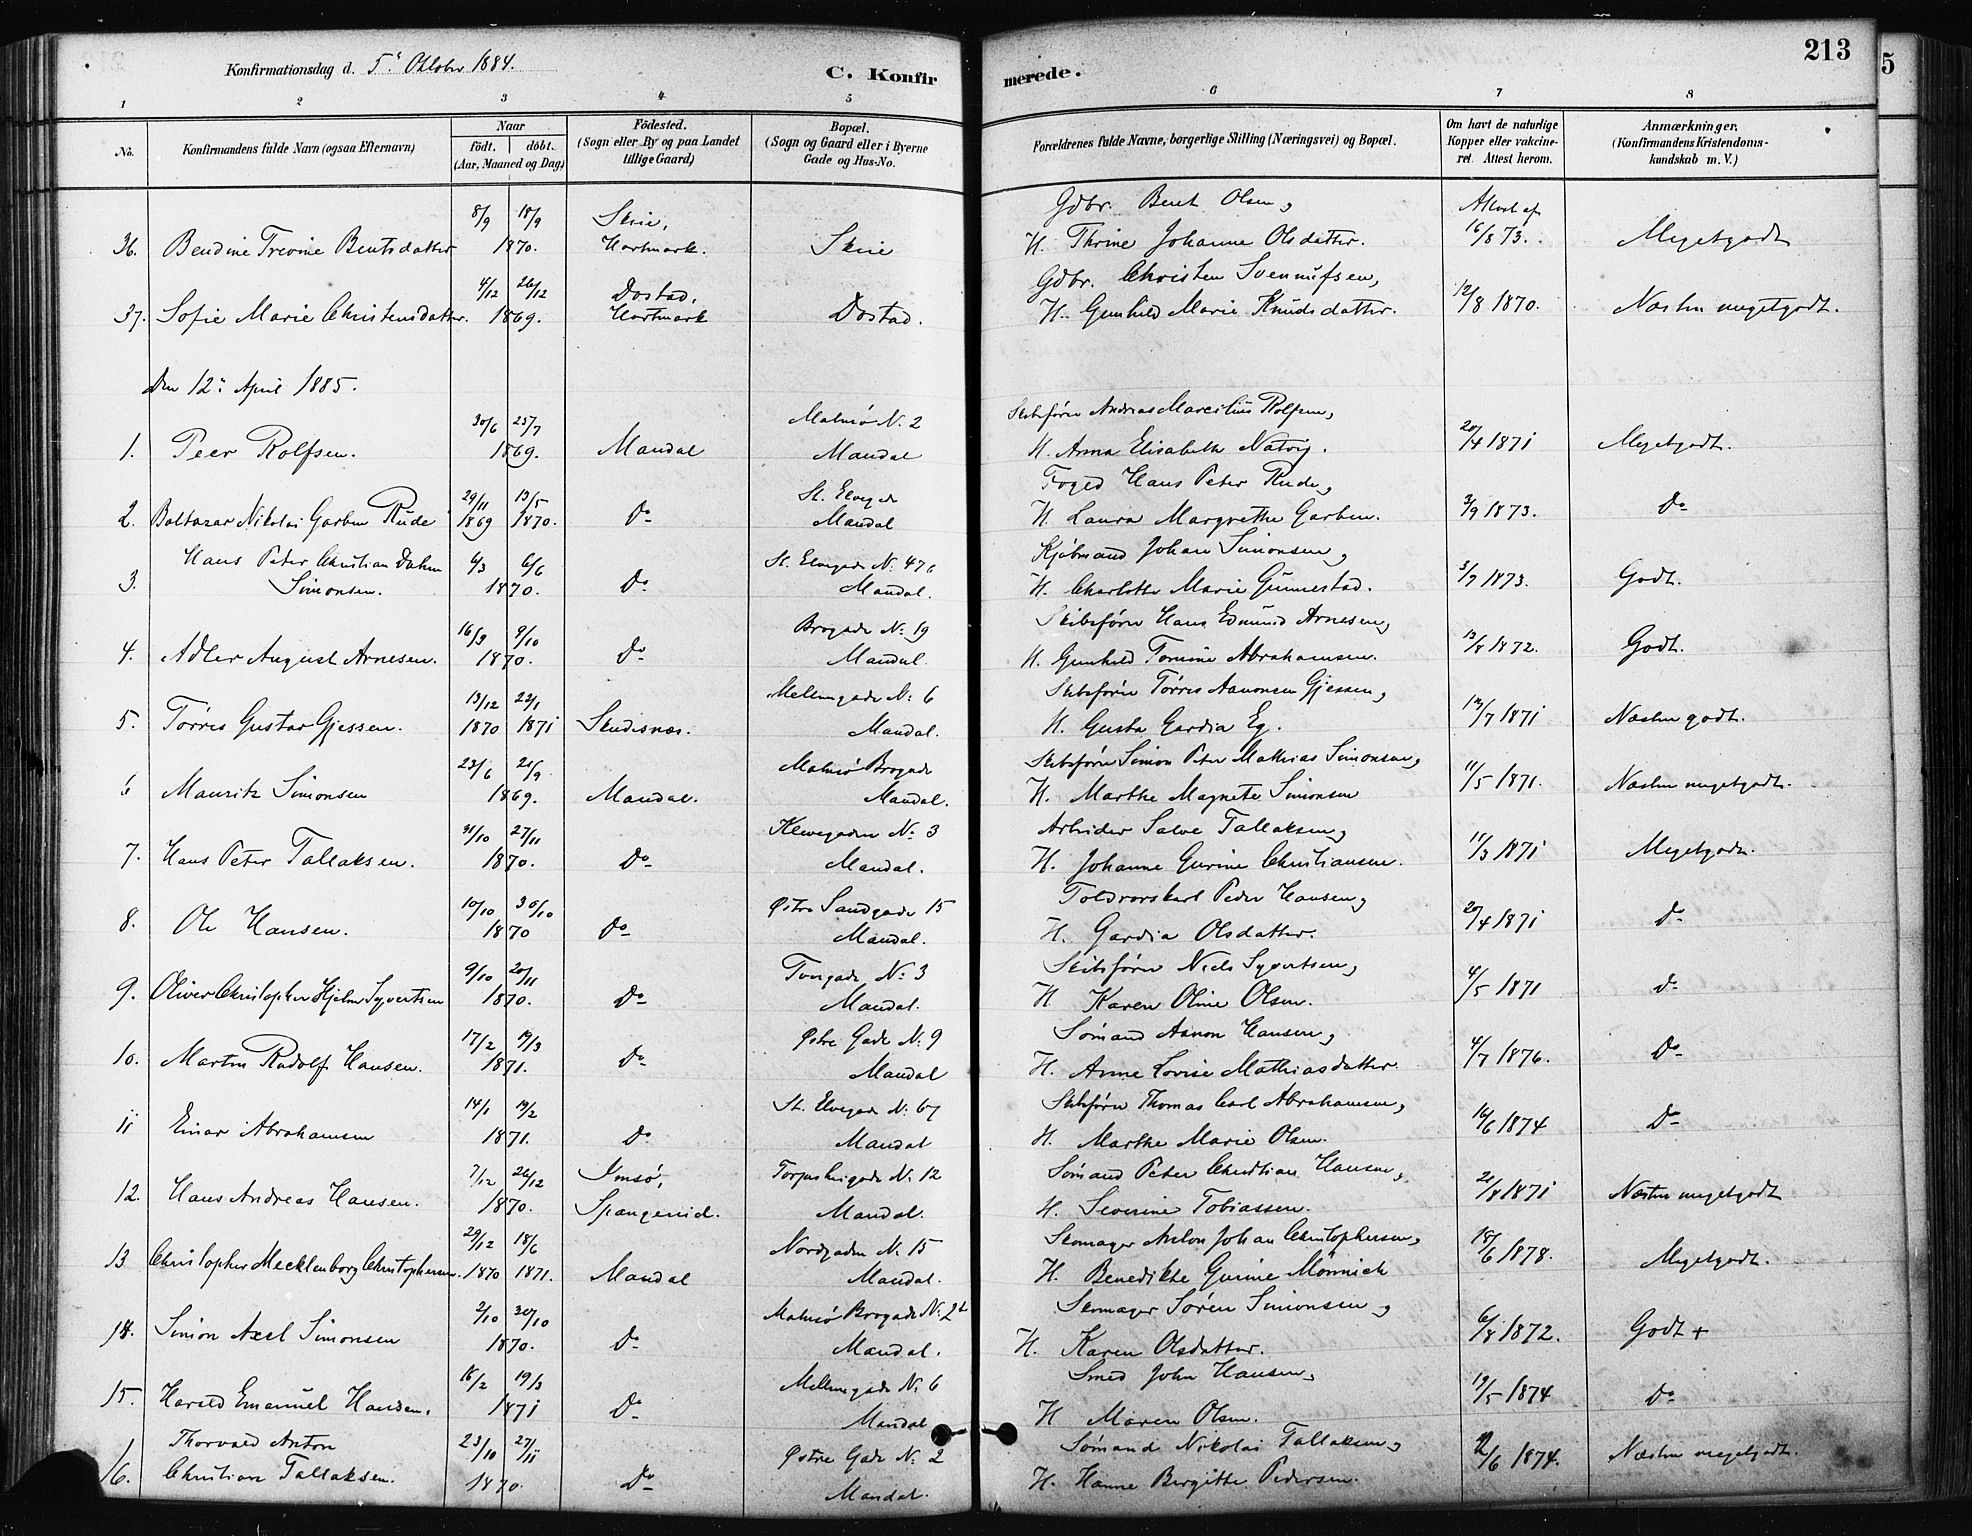 213
5
Konfirmationsdag d. 5. Oktober 1884.
C. Konfirmerede.
1 2 3 4 5 6 7 8
No.
Konfirmandens fulde Navn (ogsaa Efternavn)
Naar
födt. döbt.
(Aar, Maaned og Dag)
Födested.
(Sogn eller By og paa Landet
tillige Gaard)
Bopæl.
(Sogn og Gaard eller i Byerne
Gade og Hus-No.
Forældrenes fulde Navne, borgerlige Stilling (Næringsvei) og Bopæl.
Om havt de naturlige
Kopper eller vakcine-
ret. Attest herom.
Anmærkninger.
(Konfirmandens Kristendoms-
kundskab m. V.)
8/9 18/9 Skrie, Gdbr. Bent Olsen, Attest af
36. Bendine Trevine Bentsdatter 1870. Hartmark. Skrie H. Thrine Johanne Olsdatter. 16/8 73. Megetgodt
4/12 26/12 Dostad, Gdbr. Christen Svennufsen,
37. Sofie Marie Christensdatter. 1869. Hartmark Dostad. H. Gunhild Marie Knudsdatter. 12/8 1870. Næsten megetgodt.
Den 12. April 1885.
30/6 25/7 Malmö N. 2 Skibsförer Andreas Marcilius Rolfsen,
1. Peer Rolfsen. 1869. Mandal Mandal H. Anna Elisabeth Natvig. 20/4 1871 Megetgodt.
29/11 13/5 St. Elvegade Foged Hans Peter Rude,
2. Baltazar Nikolai Garben Rude 1869 1870. Do Mandal H. Laura Margrethe Garben. 3/9 1873. Do
Hans Peter Christian Dahm 6/3 6/6 St. Elvegade N. 476 Kjöbmand Johan Simonsen,
3. Simonsen. 1870. Do Mandal. H. Charlotte Marie Gunnestad. 3/7 1873. Godt.
16/9 9/10 Brogade N. 19 Skibsförer Hans Edmund Arnesen,
4. Adler August Arnesen. 1870. Do Mandal. H. Gunhild Tomine Abrahamsen. 13/8 1872. Godt.
13/12 22/1 Mellemgade N. 6 Skibsförer Törris Aanonsen Gjessen,
5. Törris Gustav Gjessen. 1870 1871 Skudisnæs. Mandal. H. Gusta Gardia Eg. 13/7 1871 Næsten godt.
23/6 21/9 Malmö Brogade Skibsförer Simon Peter Mathias Simonsen,
6 Mauritz Simonsen 1869. Mandal. Mandal. H. Marthe Magnete Simonsen 11/5 1871. Næsten megetgodt.
31/10 27/11 Klevegaden N. 3 Arbeider Salve Tallaksen,
7. Hans Peter Tallaksen. 1870. Do Mandal. H. Johanne Gurine Christiansen. 11/3 1871 Megetgodt.
10/10 30/10 Østre Sandgade 15 Toldrorskarl Peder Hansen,
8. Ole Hansen. 1870 Do Mandal. H. Gardia Olsdatter. 20/4 1871 Do
9/10 20/11 Tvergade N. 3 Skibsförer Niels Syvertsen,
9. Oliver Christopher Hjelm Syvertsen 1870. Do Mandal. H Karen Oline Olsen. 4/5 1871 Do
17/2 19/3 Østre Gade N. 9 Sömand Aanon Hansen,
10. Martin Rudolf Hansen. 1871. Do Mandal H. Anne Lovise Mathiasdatter. 4/7 1876. Do
14/1 19/2 St. Elvegade N. 67 Skibsförer Thomas Carl Abrahamsen,
11 Einar Abrahamsen 1871. Do Mandal H. Marthe Marie Olsen. 16/6 1874 Do
7/12 26/12 Imsö, N. 12 Sömand Peter Christian Hansen,
12. Hans Andreas Hansen. 1870. Spangereid. Mandal. H. Severine Tobiassen. 21/8 1871 Næsten megetgodt
29/12 18/6 Nordgaden N. 15 Skomager Anton Johan Christophersen,
13 Christopher Mecklenborg Christophersen. 1870 1871. Mandal Mandal. H. Benedikte Gurine Mönnich 18/6 1878. Megetgodt.
2/10 30/10 Malmö Brogade N. Skomager Sören Simonsen,
14. Simon Axel Simonsen 1870. Do Mandal. H. Karen Olsdatter. 6/8 1872. Godt +
16/2 19/3 Mellemgade N. 6 Smed John Hansen,
15. Harald Emanuel Hansen. 1871 Do Mandal H Maren Olsen. 19/5 1874 Do
Thorvald Anton 23/10 27/11 Østre Gade N. 2 Sömand Nikolai Tallaksen,
16. Christian Tallaksen. 1870 Do Mandal. H. Hanne Birgitte Pedersen. /6 1874. Næsten megetgodt.